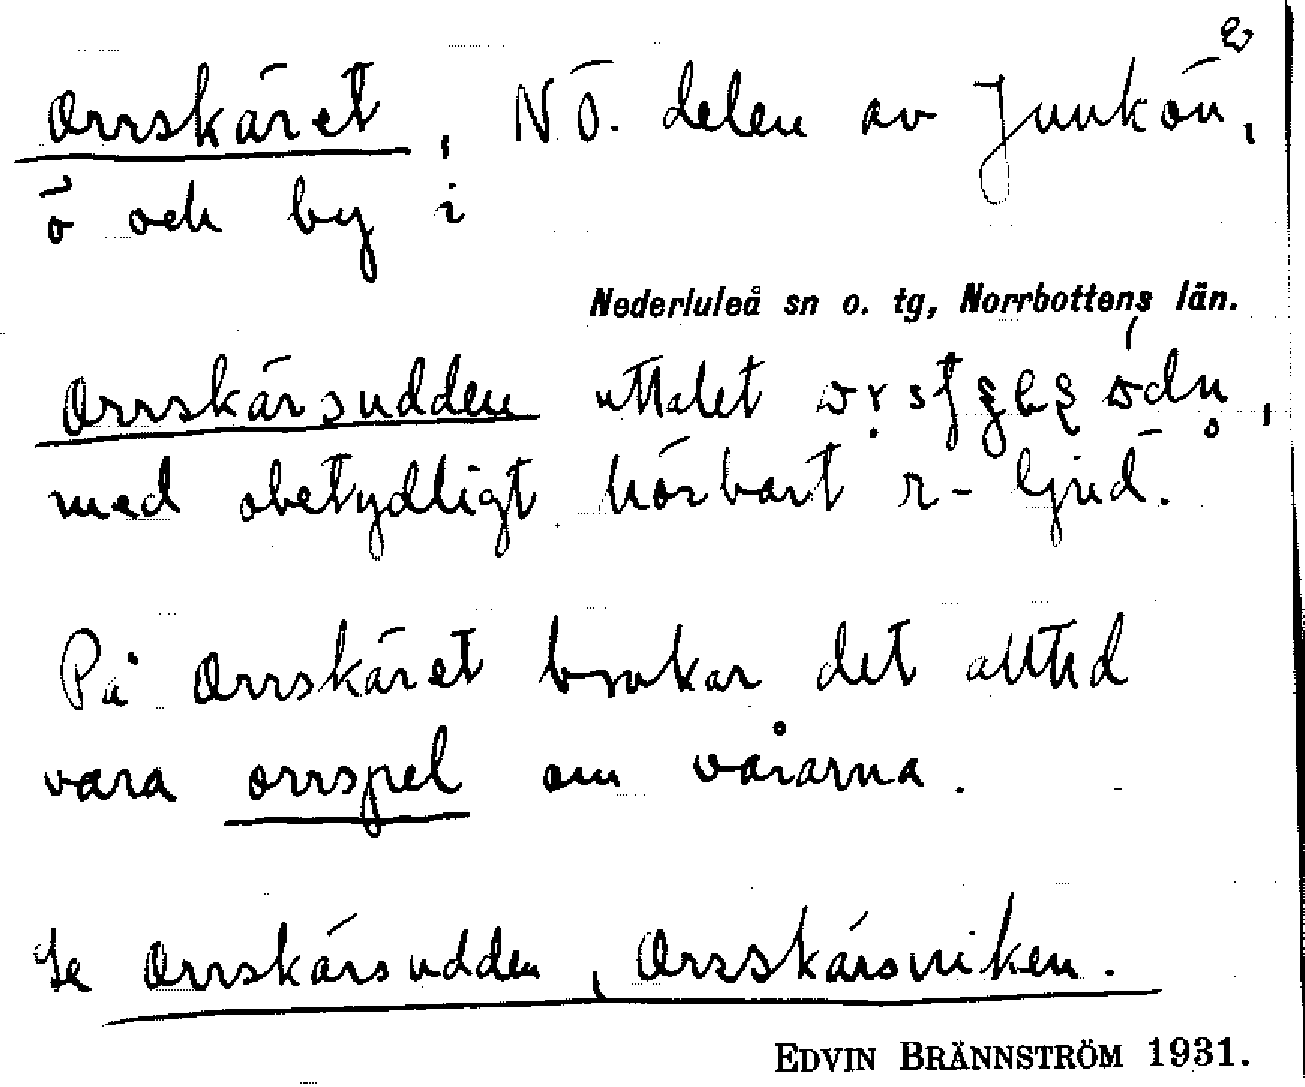 2
Orrskäret, NÖ. delen av Junkön,
ö och by i
Nederluleå sn o. tg, Norrbottens län.
Orrskärsudden uttalat
med obetydligt hörbart r-ljud.
På Orrskäret brukar det alltid
vara orrspel om vårarna.
Se Orrskärsudden, Orrskärsviken.
EDVIN BRÄNNSTRÖM 1931.